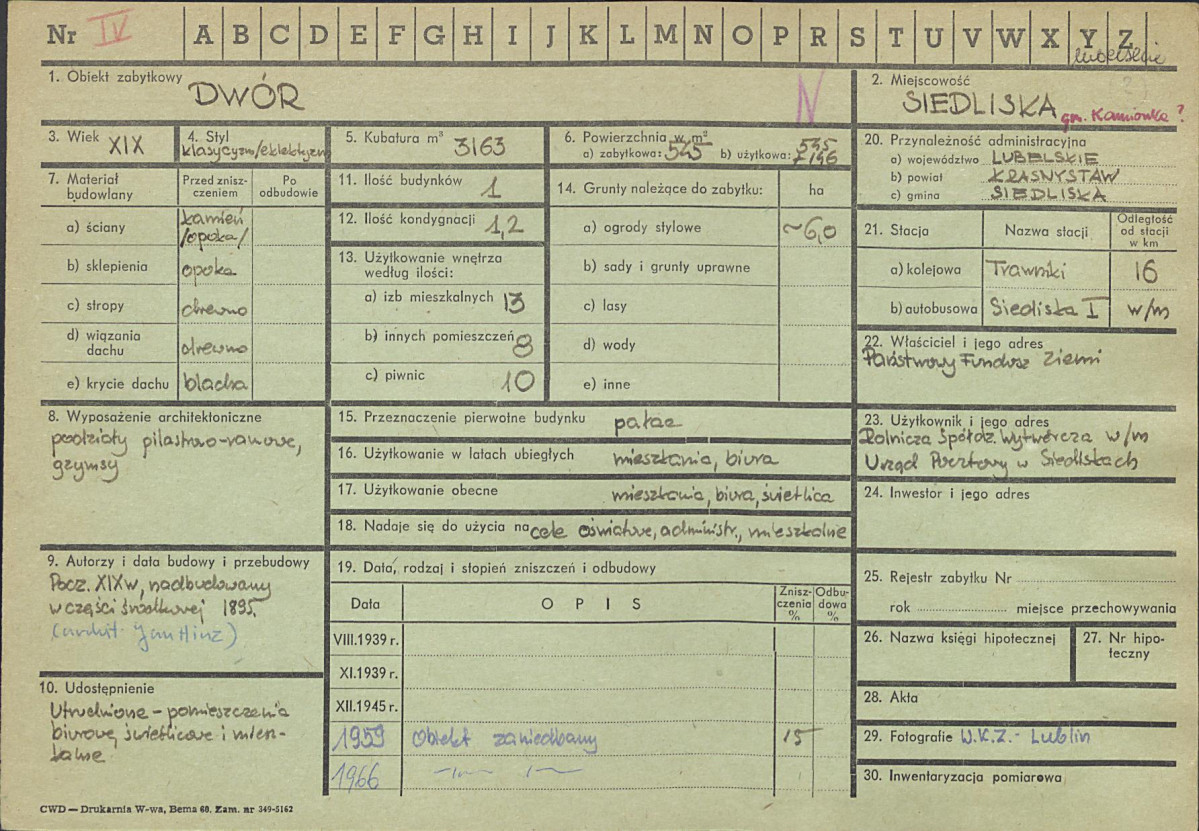 Nr IV A B C D E F G H I J K L M N O P R S T U V W X Y Z
lubelskie
1. Obiekt zabytkowy
DWÓR
N
2. Miejscowość
SIEDLISKA gm. Kamionka?
3. Wiek XIX
4. Styl
klasycyzm/eklektyzm
5. Kubatura m³ 3163
6. Powierzchnia w m²
a) zabytkowa: 545 b) użytkowa: 545
1196
7. Materiał
budowlany
Przed znisz-
czeniem
Po
odbudowie
a) ściany
kamień
/opoka/
b) sklepienia opoka
c) stropy drewno
d) wiązania
dachu
drewno
e) krycie dachu blacha
8. Wyposażenie architektoniczne
podziały pilastrowo-ramowe,
gzymsy
9. Autorzy i data budowy i przebudowy
Pocz. XIX w, nadbudowany
w części środkowej 1895.
(archit. Jan Hinz)
10. Udostępnienie
Utrudnione - pomieszczenia
biurowe, świetlicowe i miesz-
kalne
11. Ilość budynków 1
12. Ilość kondygnacji 1,2
13. Użytkowanie wnętrza
według ilości:
a) izb mieszkalnych 13
b) innych pomieszczeń 8
c) piwnic 10
14. Grunty należące do zabytku: ha
a) ogrody stylowe ~6,0
b) sady i grunty uprawne
c) lasy
d) wody
e) inne
15. Przeznaczenie pierwotne budynku pałac
16. Użytkowanie w latach ubiegłych mieszkania, biura
17. Użytkowanie obecne mieszkania, biura, świetlica
18. Nadaje się do użycia na cele oświatowe, administr., mieszkalne
19. Data, rodzaj i stopień zniszczeń i odbudowy
Data
O P I S
Znisz-
czenia
%
Odbu-
dowa
%
VIII.1939 r.
XI.1939 r.
XII.1945 r.
1959 Obiekt zaniedbany 15
1966 -"- -"-
20. Przynależność administracyjna
a) województwo LUBELSKIE
b) powiat KRASNYSTAW
c) gmina SIEDLISKA
21. Stacja
Nazwa stacji
Odległość
od stacji
w km
a) kolejowa Trawniki 16
b) autobusowa Siedliska I w/m
22. Właściciel i jego adres
Państwowy Fundusz Ziemi
23. Użytkownik i jego adres
Rolnicza Spółdz. Wytwórcza w/m
Urząd Pocztowy w Siedliskach
24. Inwestor i jego adres
25. Rejestr zabytku Nr
rok miejsce przechowywania
26. Nazwa księgi hipotecznej
27. Nr hipo-
teczny
28. Akta
29. Fotografie W.K.Z.- Lublin
30. Inwentaryzacja pomiarowa
CWD — Drukarnia W-wa, Bema 60. Zam. nr 349-5162